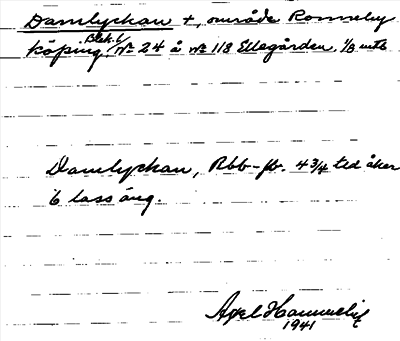 Damlyckan +, område Ronneby
köping, Blek. l. No 24 å No 118 Ellegården, 1/8 mtl
Damlyckan, Rbb-fb. 4 3/4 tld åker
6 lass äng.
Axel
1941